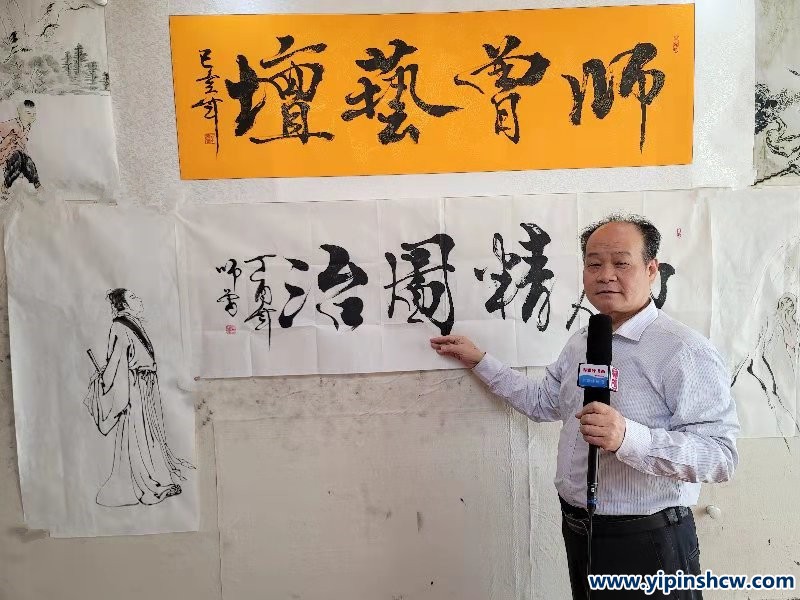 師曾藝壇
己亥年
精圖治
丁酉年
師曾
www.yipinshcw.com